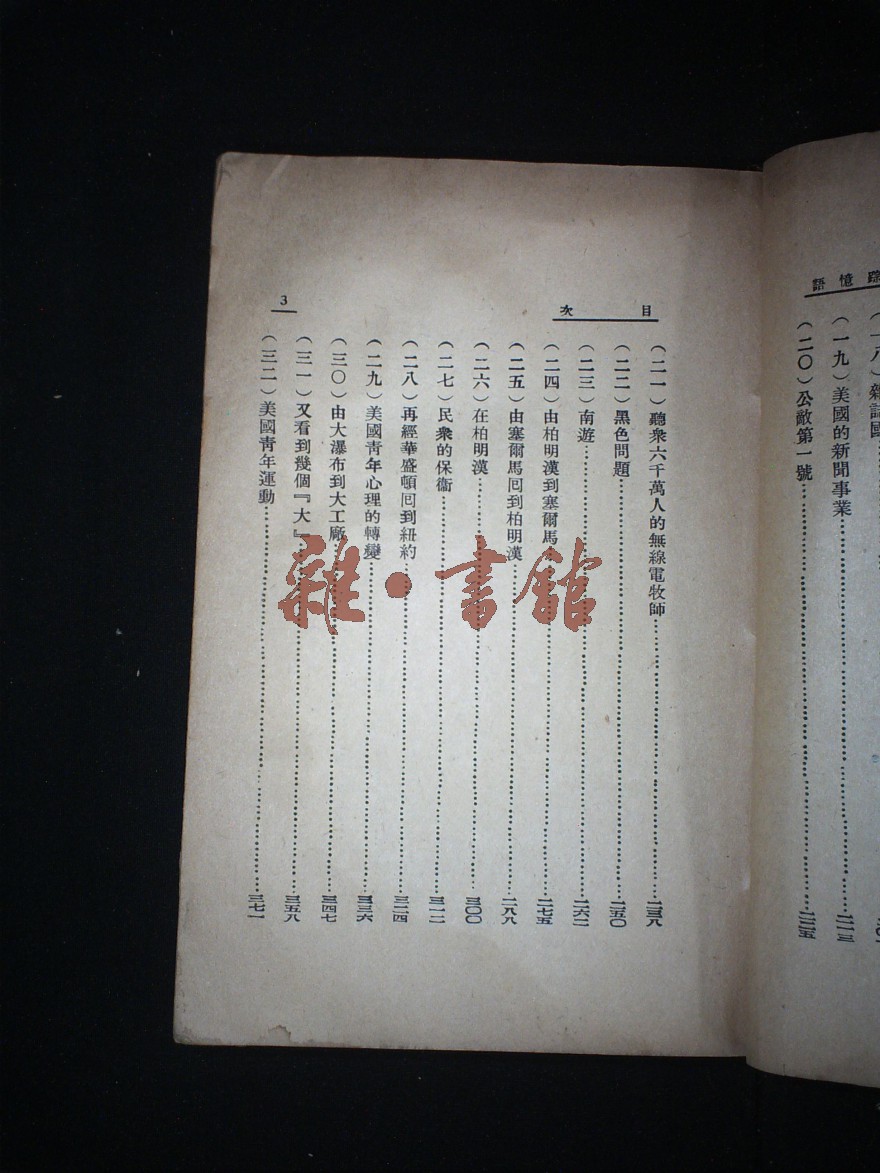 憶語
(一八)雜誌國
(一九)美國的新聞事業……二一三
(二〇)公敵第一號……二二五
目次
3
(二一)聽衆六千萬人的無線電牧師……二三八
(二二)黑色問題……二五〇
(二三)南遊……二六二
(二四)由柏明漢到塞爾馬……二七五
(二五)由塞爾馬回到柏明漢……二八八
(二六)在柏明漢……三〇〇
(二七)民衆的保衞……三一二
(二八)再經華盛頓回到紐約……三二四
(二九)美國靑年心理的轉變……三三六
(三〇)由大瀑布到大工廠……三四七
(三一)又看到幾個『大』……三五八
(三二)美國靑年運動……三七一
雜·書館